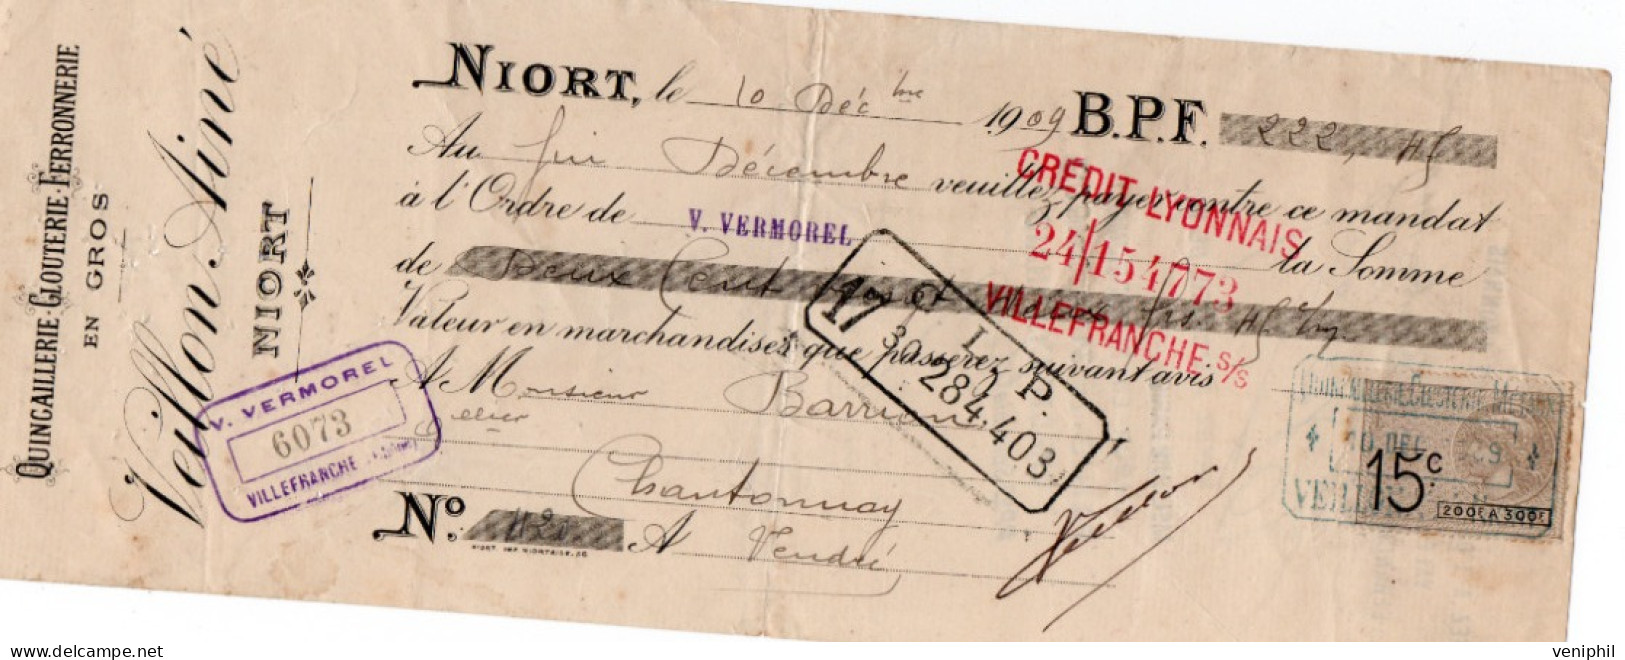 QUINCAILLERIE-CLOUTERIE-FERRONNERIE
EN GROS
Veillon Aimé
NIORT
NIORT, le 10 Déc bre 1909 B.P.F. 222,45
Au fin Décembre veuillez payer contre ce mandat
à l'Ordre de V. VERMOREL la Somme
de Deux Cent vingt deux frs 45
Valeur en marchandises que passerez suivant avis
A Monsieur
Chantonnay
No. 420 A Vendée
NIORT. IMP. NIORTAISE.
CRÉDIT LYONNAIS
24/154773
VILLEFRANCHE S/S
V. VERMOREL
6073
VILLEFRANCHE (RHÔNE)
17 C. L. P.
30
284.403
Veillon
10 DEC 09
VEILLON
15c
200F A 300F
veniphil